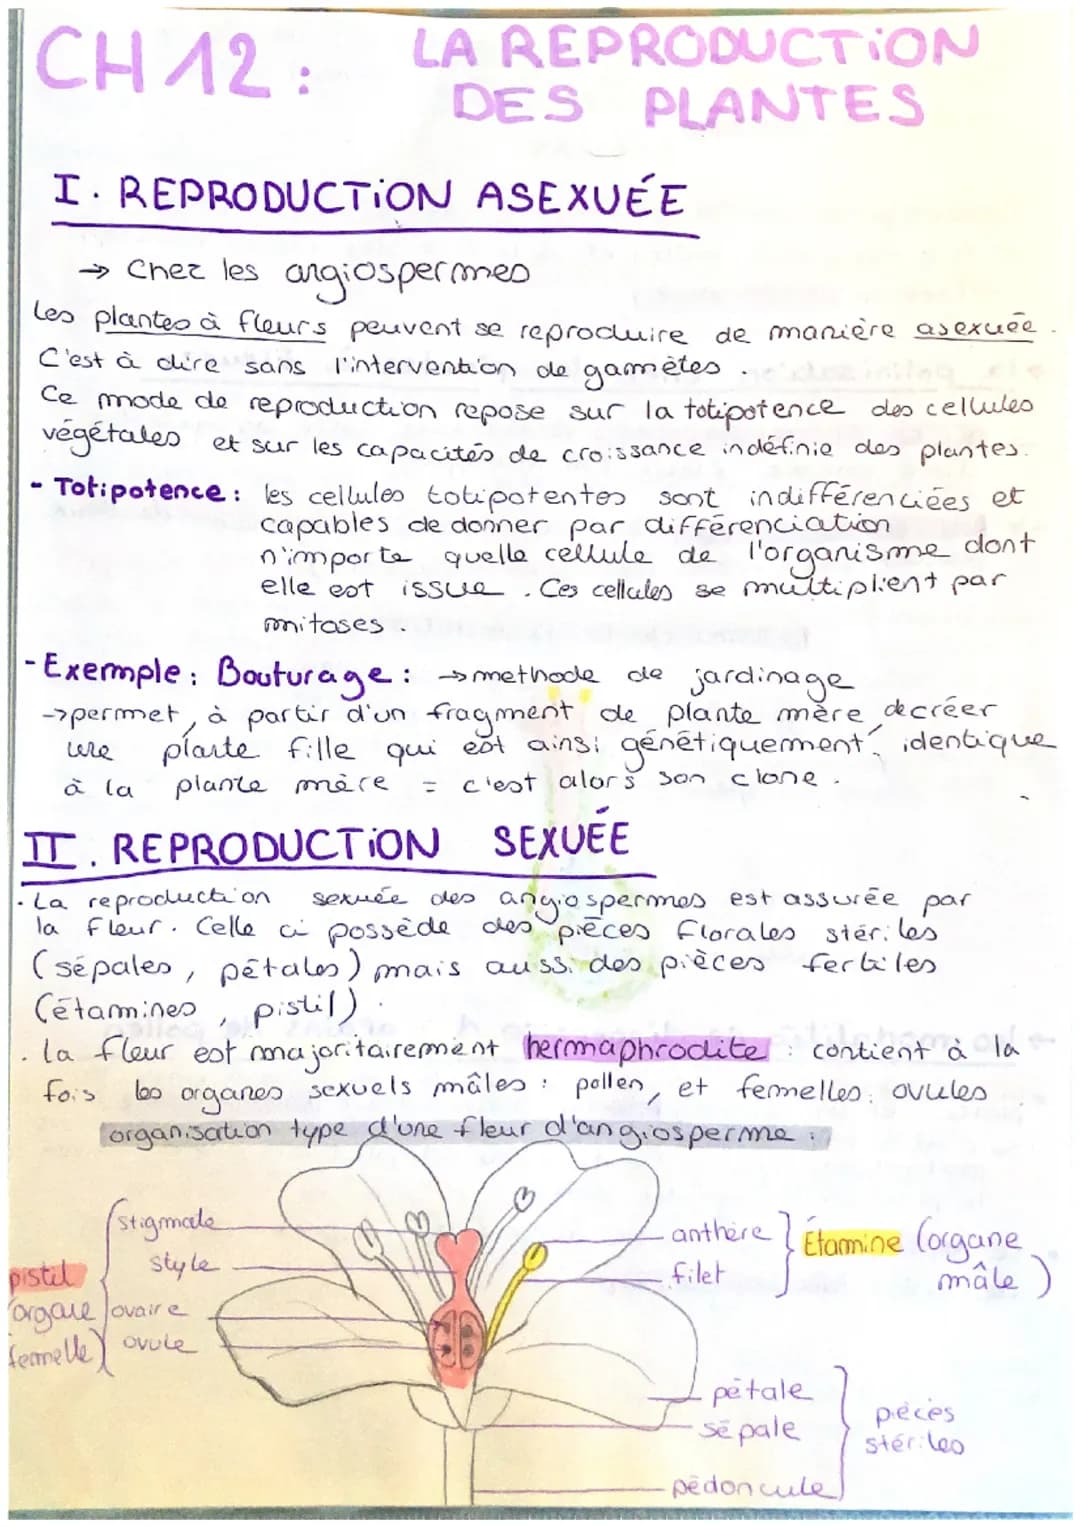 CH 12 : LA REPRODUCTION
DES PLANTES
I. REPRODUCTION ASEXUÉE
→ Chez les angiospermes
Les plantes à fleurs peuvent se reproduire de manière asexuée.
C'est à dire sans l'intervention de gamètes.
Ce mode de reproduction repose sur la totipotence des cellules
végétales et sur les capacités de croissance indéfinie des plantes.
- Totipotence : les cellules totipotentes sont indifférenciées et
capables de donner par différenciation
n'importe quelle cellule de l'organisme dont
elle est issue. Ces cellules se multiplient par
mitoses.
- Exemple : Bouturage : → methode de jardinage
→ permet, à partir d'un fragment de plante mère, de créer
une plante fille qui est ainsi génétiquement identique
à la plante mère = c'est alors son clone.
II. REPRODUCTION SEXUÉE
. La reproduction sexuée des angiospermes est assurée par
la fleur. Celle ci possède des pièces florales stériles
(sépales, pétales) mais aussi des pièces fertiles
(étamines, pistil).
. la fleur est majoritairement hermaphrodite : contient à la
fois les organes sexuels mâles : pollen, et femelles : ovules
organisation type d'une fleur d'angiosperme :
stigmate
style
ovaire
ovule
pistil
(organe
femelle)
anthère
filet
Étamine (organe
mâle)
pétale
sépale
pédoncule
pièces
stériles